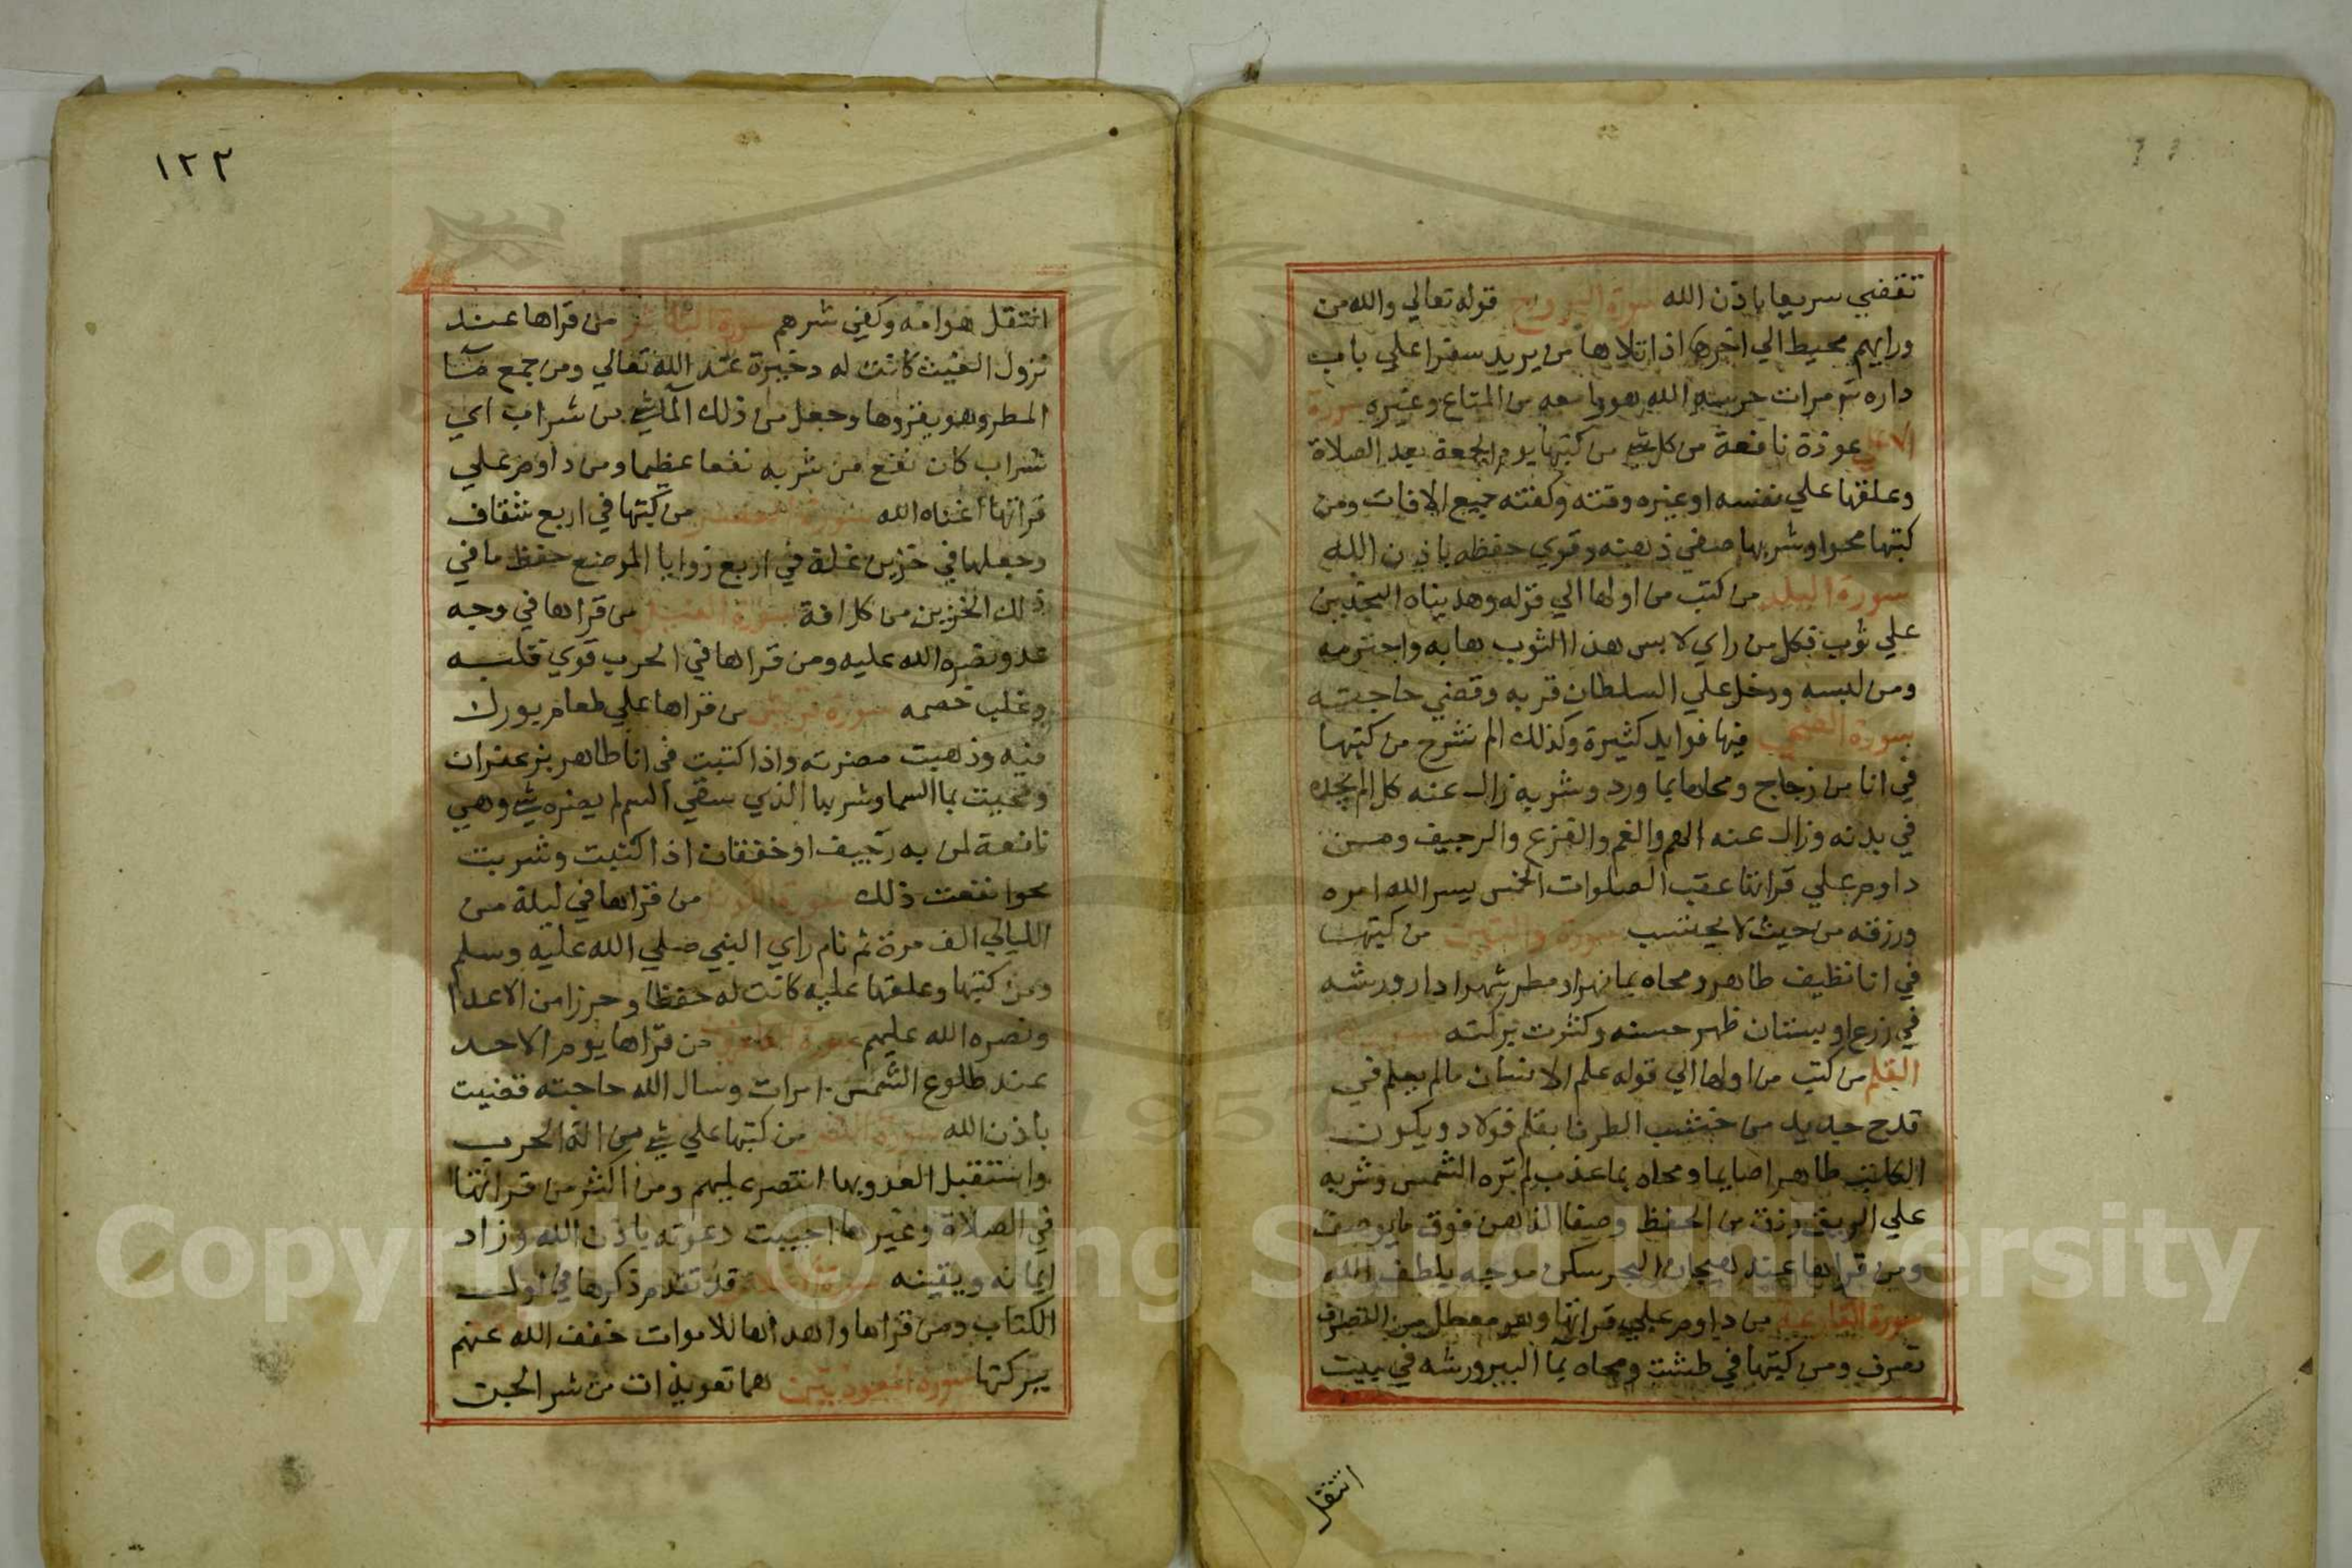 تقضي سريعا باذن الله سورة البروج قوله تعالي والله من
ورايهم محيط الي اخرها اذا تلاها من يريد سفرا علي باب
داره مرات حرسه الله هو وما معه من المتاع وغيره سورة
الاعلي عوذة نافعة من كل شي من كتبها يوم الجمعة بعد الصلاة
وعلقها علي نفسه او غيره وقته وكفته جميع الافات ومن
كتبها محوا وشربها صفي ذهنه وقوي حفظه باذن الله
سورة البلد من كتب من اولها الي قوله وهديناه النجدين
علي ثوب فكل من راي لابس هذا الثوب هابه واحترمه
ومن لبسه ودخل علي السلطان قربه وقضي حاجته
سورة الضحي فيها فوايد كثيرة وكذلك الم نشرح من كتبها
في انا من زجاج ومحاها بما ورد وشربه زال عنه كل الم يجده
في بدنه وزال عنه الهم والغم والفزع والرجيف ومن
داوم علي قرانتها عقب الصلوات الخمس يسر الله امره
ورزقه من حيث لا يحتسب سورة والتين من كتبها
في انا نظيف طاهر ومحاه بما نهر او مطر شهر اذار ورشه
في زرع او بستان ظهر حسنه وكثرت بركته سورة
القلم من كتب من اولها الي قوله علم الانسان مالم يعلم في
قدح جديد من خشب الطرفا بقلم فولاد ويكون
الكاتب طاهرا صايما ومحاه بما عذب لم تره الشمس وشربه
علي الريق رزق من الحفظ وصفا الذهن فوق ما يوصف
ومن قراها عند هيجان البحر سكن موجه بلطف الله
سورة القارعة من داوم علي قرانتها وهو معطل من التصرف
تصرف ومن كتبها في طشت ومحاه بما البير ورشه في بيت
انتقل
١٢٢
انتقل هوامه وكفي شرهم سورة التكاثر من قراها عند
نزول الغيث كانت له ذخيرة عند الله تعالي ومن جمع ما
المطر وهو يقروها وجعل من ذلك الما شي من شراب اي
شراب كان نفع من شربه نفعا عظيما ومن داوم علي
قرانتها اغناه الله سورة العصر من كتبها في اربع شقاف
وجعلها في خزين غلة في اربع زوايا الموضع حفظ ما في
ذلك الخزين من كل افة سورة الفيل من قراها في وجه
عدو نصره الله عليه ومن قراها في الحرب قوي قلبه
وغلب خصمه سورة قريش من قراها علي طعام بورك
فيه وذهبت مضرته واذا كتبت في انا طاهر بزعفران
ومحيت بما السما وشربها الذي سقي السم لم يضره شي وهي
نافعة لمن به رجيف او خفقان اذا كتبت وشربت
محوا نفعت ذلك سورة الكوثر من قراها في ليلة من
الليالي الف مرة ثم نام راي النبي صلي الله عليه وسلم
ومن كتبها وعلقها عليه كانت له حفظا وحرزا من الاعدا
ونصره الله عليهم سورة من قراها يوم الاحد
عند طلوع الشمس ١٠ مرات وسال الله حاجته قضيت
باذن الله سورة النصر من كتبها علي شي من الة الحرب
واستقبل العدو بها انتصر عليهم ومن اكثر من قرانتها
في الصلاة وغيرها اجيبت دعوته باذن الله وزاد
ايمانه ويقينه سورة قد تقدم ذكرها في اول
الكتاب ومن قراها واهداها للاموات خفف الله عنهم
ببركتها سورة المعوذتين هما تعويذات من شر الجن
Copyright © King Saud University
1957